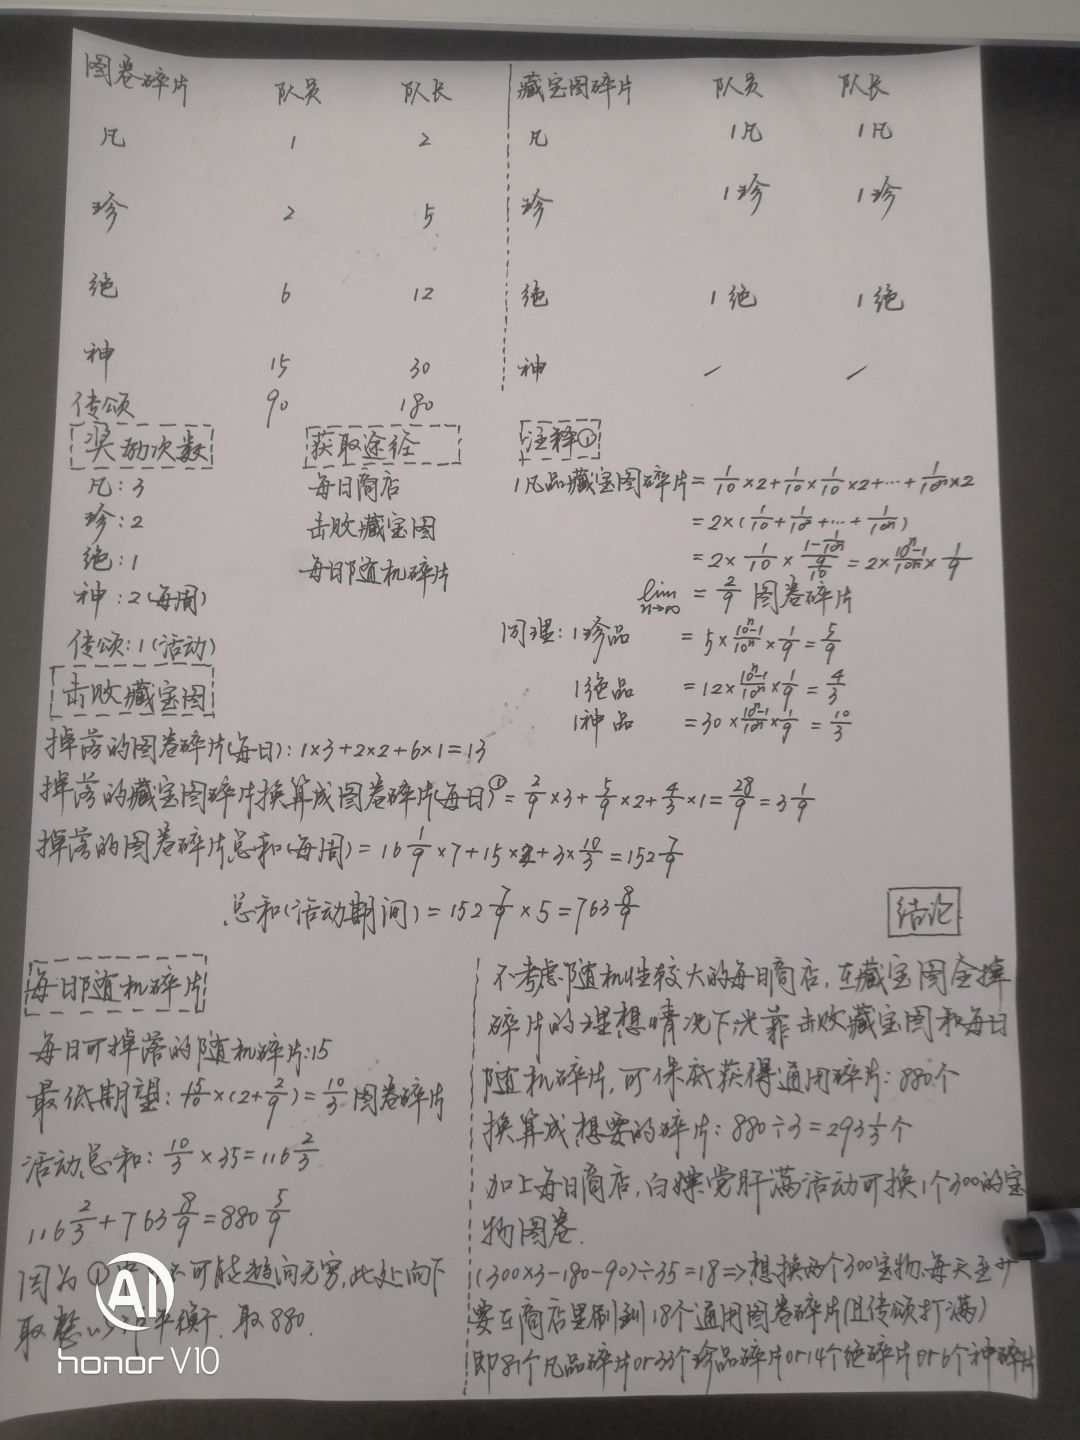 图卷碎片 队员 队长
凡 1 2
珍 2 5
绝 6 12
神 15 30
传颂 90 180
藏宝图碎片 队员 队长
凡 1凡 1凡
珍 1珍 1珍
绝 1绝 1绝
神 / /
奖励次数
凡:3
珍:2
绝:1
神:2(每周)
传颂:1(活动)
获取途径
每日商店
击败藏宝图
每日随机碎片
注释①
1凡品藏宝图碎片=1/10×2+1/10×1/10×2+…+1/10ⁿ×2
=2×(1/10+1/10²+…+1/10ⁿ)
=2×1/10×(1-1/10ⁿ)/(9/10)=2×(10ⁿ-1)/10ⁿ×1/9
lim n→∞ =2/9 图卷碎片
同理:1珍品 =5×(10ⁿ-1)/10ⁿ×1/9=5/9
1绝品 =12×(10ⁿ-1)/10ⁿ×1/9=4/3
1神品 =30×(10ⁿ-1)/10ⁿ×1/9=10/3
击败藏宝图
掉落的图卷碎片(每日):1×3+2×2+6×1=13
掉落的藏宝图碎片换算成图卷碎片(每日)①=2/9×3+5/9×2+4/3×1=28/9=3 1/9
掉落的图卷碎片总和(每周)=16 1/9×7+15×2+3×10/3=152 7/9
总和(活动期间)=152 7/9×5=763 8/9
每日随机碎片
每日可掉落的随机碎片:15
最低期望:15/10×(2+2/9)=10/3图卷碎片
活动总和:10/3×35=116 2/3
116 2/3+763 8/9=880 5/9
因为① 不可能趋向无穷,此处向下
取整以 平衡,取880.
结论
不考虑随机性较大的每日商店,在藏宝图全掉
碎片的理想情况下,光靠击败藏宝图和每日
随机碎片,可保底获得通用碎片:880个
换算成想要的碎片:880÷3=293 1/3个
加上每日商店,白嫖党肝满活动可换1个300的宝
物图卷.
(300×3-180-90)÷35=18⇒想换两个300宝物,每天至少
要在商店里刷到18个通用图卷碎片(且传颂打满)
即81个凡品碎片or33个珍品碎片or14个绝碎片or6个神碎片
AI
honor V10